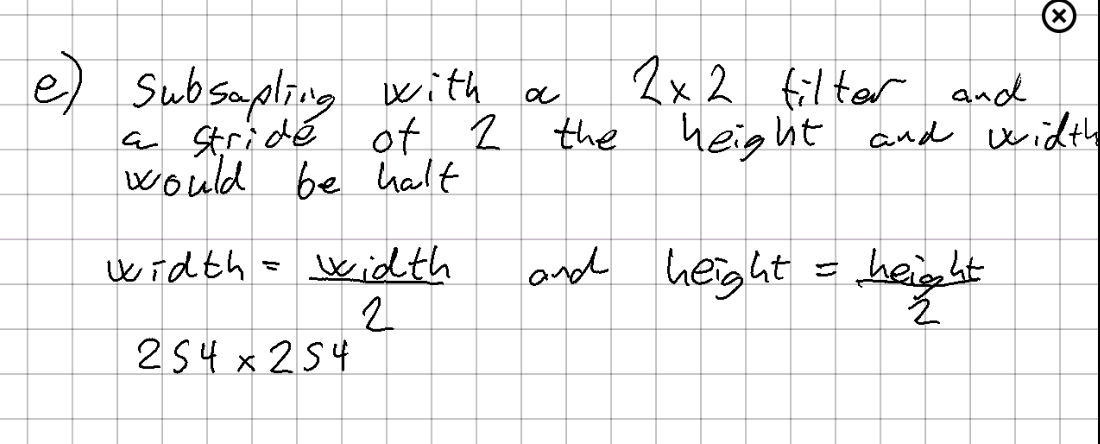 e) Subsapling with a 2x2 filter and
a stride of 2 the height and width
would be half
width = width/2 and height = height/2
254 x 254